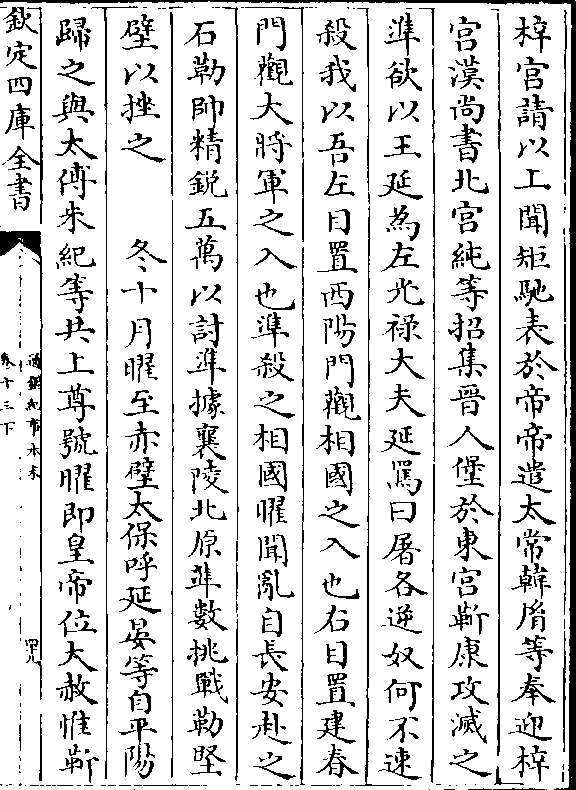 梓宫請以上聞矩馳表於帝帝遣太常韓𦙍等奉迎梓
宫漢尚書北宫純等招集晉人堡於東宫靳康攻滅之
準欲以王延為左光禄大夫延罵曰屠各逆奴何不速
殺我以吾左目置西陽門觀相國之入也右目置建春
門觀大將軍之入也準殺之相國曜聞亂自長安赴之
石勒帥精鋭五萬以討準據襄陵北原準數挑戰勒堅
壁以挫之　冬十月曜至赤壁太保呼延晏等自平陽
歸之與太傅朱紀等共上尊號曜即皇帝位大赦惟靳
欽定四庫全書
通鑑紀事本末
卷十三下
四十八